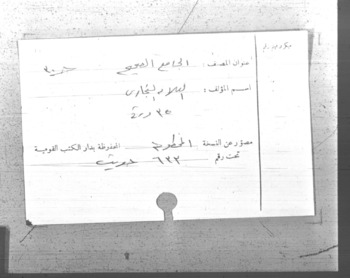 عنوان المصنف : الجامع الصحيح حـ ٣٠
اسم المؤلف : البخارى
٣٥ ورقة
مصور عن النسخة المخطوطة المحفوظة بدار الكتب القومية
تحت رقم ٦٣٣ حديث